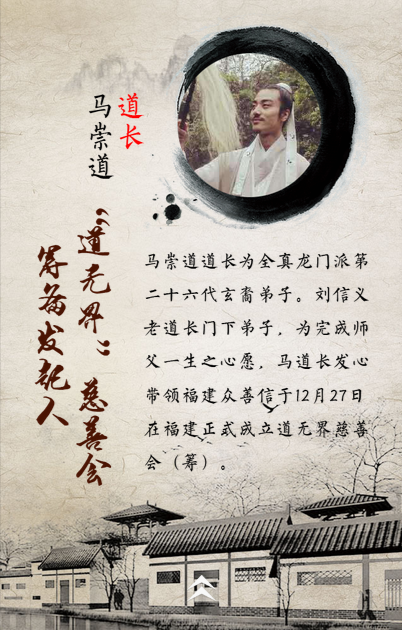 道长
马崇道
“道无界”慈善会
筹备发起人
马崇道道长为全真龙门派第
二十六代玄裔弟子。刘信义
老道长门下弟子，为完成师
父一生之心愿，马道长发心
带领福建众善信于12月27日
在福建正式成立道无界慈善
会（筹）。